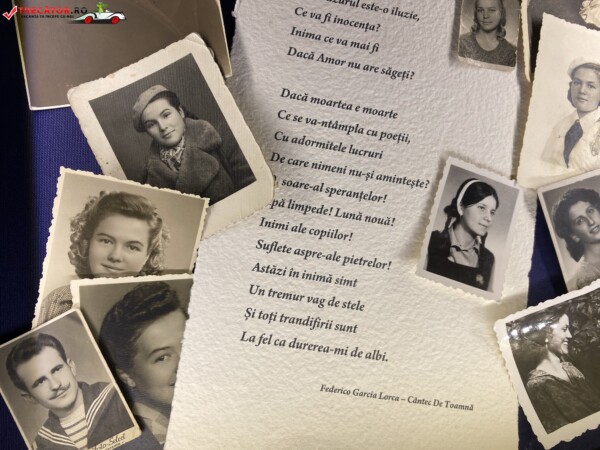 IHELATOR.RO
Ce va fi inocența?
Inima ce va mai fi
Dacă Amor nu are săgeți?
Dacă moartea e moarte
Ce se va-ntâmpla cu poeții,
Cu adormitele lucruri
De care nimeni nu-și amintește?
soare-al speranțelor!
pă limpede! Lună nouă!
Inimi ale copiilor!
Suflete aspre-ale pietrelor!
Astăzi în inimă simt
Un tremur vag de stele
Și toți trandifirii sunt
La fel ca durerea-mi de albi.
Federico Garcia Lorca – Cântec De Toamnă
Foto-Select